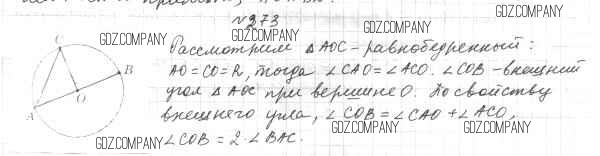 № 273
GDZ.COMPANY GDZ.COMPANY GDZ.COMPANY
GDZ.COMPANY
Рассмотрим △AOC - равнобедренный:
C
AO = CO = R, тогда ∠CAO = ∠ACO. ∠COB - внешний
B
O
угол △AOC при вершине O. По свойству
A
внешнего угла, ∠COB = ∠CAO + ∠ACO,
GDZ.COMPANY GDZ.COMPANY GDZ.COMPANY
∠COB = 2·∠BAC.